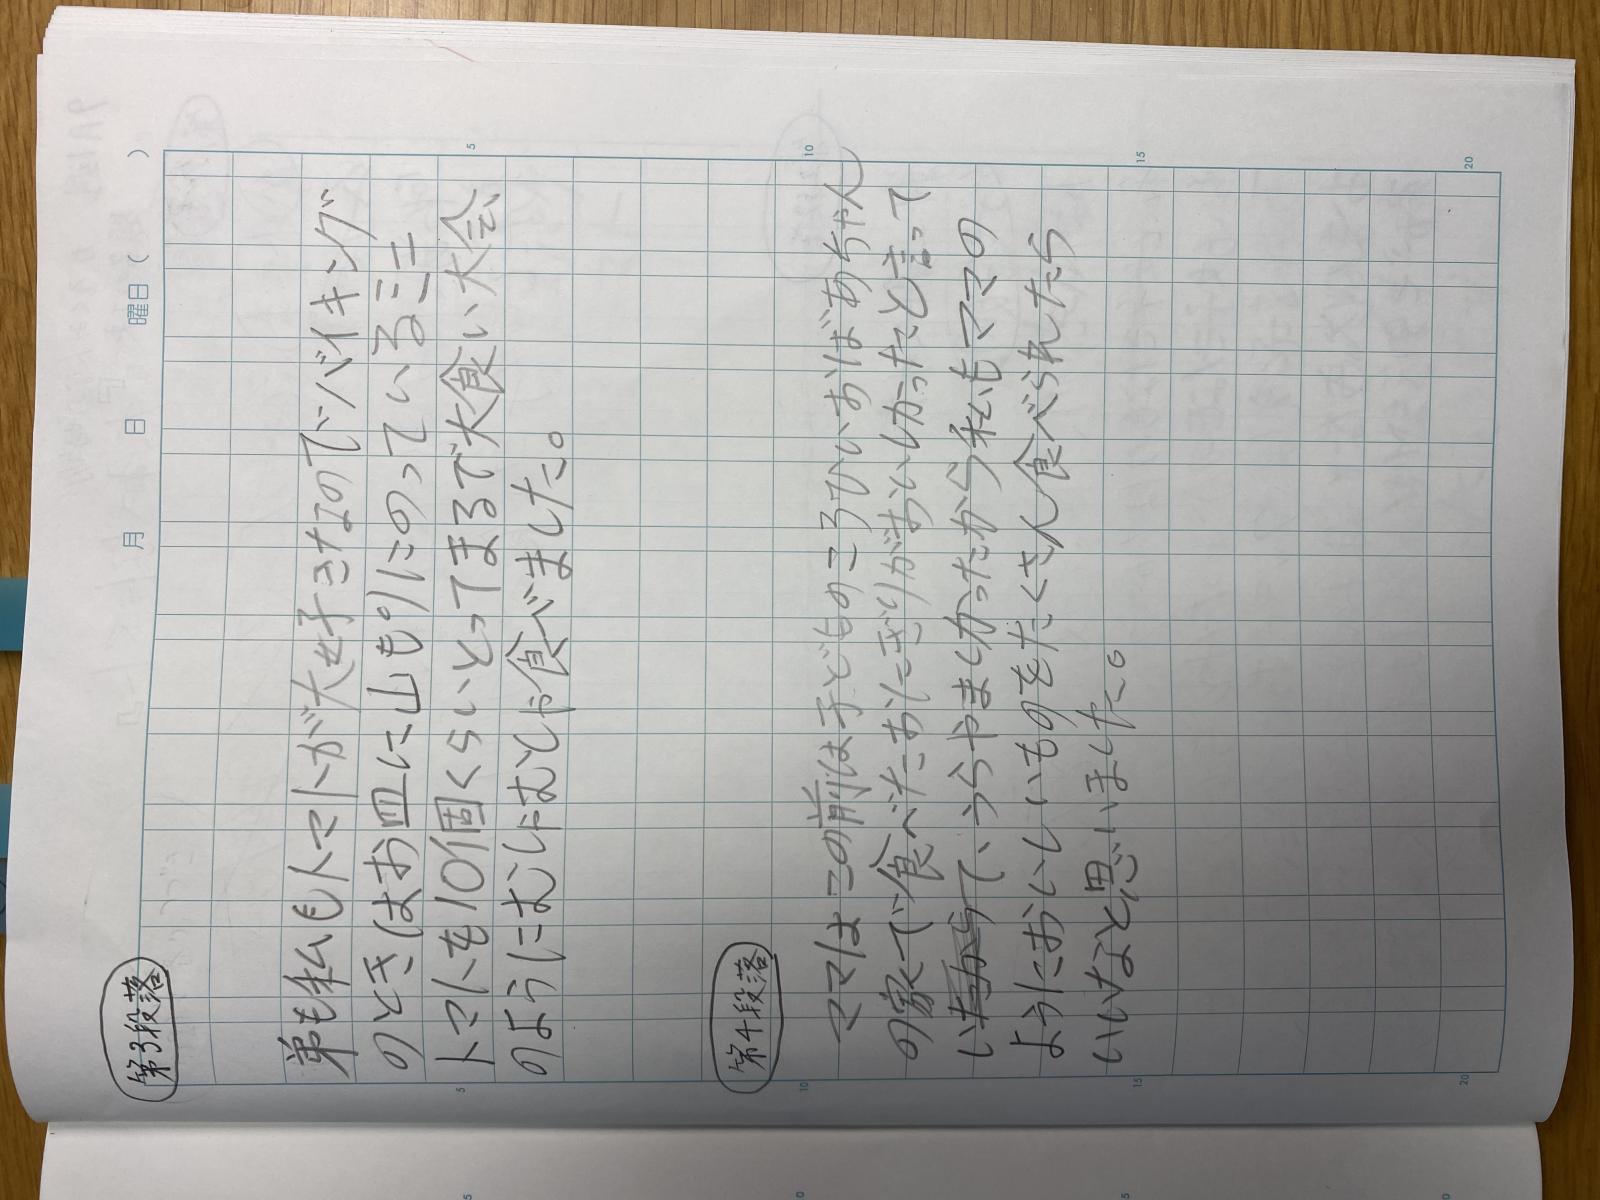 月 日 曜日( )
第3段落
弟も私もトマトが大好きなのでバイキング
のときはお皿に山もりにのっているミニ
トマトを10個くらいとってまるで大食い大会
のようにむしゃむしゃ食べました。
第4段落
ママはこの前は子どものころひいおばあちゃん
の家で食べたおにぎりがおいしかったと言って
いて、うらやましかったから私もママの
ようにおいしいものをたくさん食べられたら
いいなと思いました。
5
10
15
20
5
10
15
20